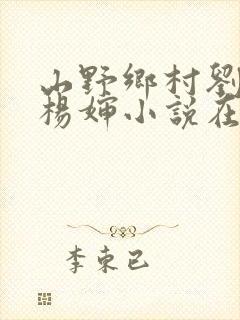 山野鄉村劉
楊婶小説在
李東已